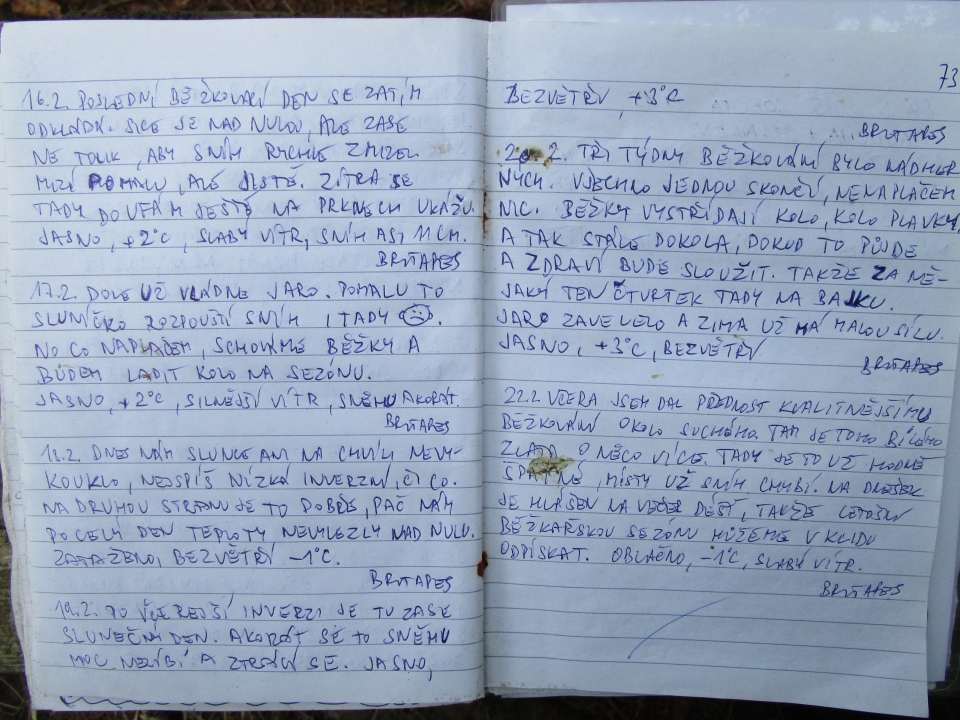 16.2. POSLEDNÍ BĚŽKOVACÍ DEN SE ZATÍM
ODKLÁDÁ. SICE JE NAD NULOU, ALE ZASE
NE TOLIK, ABY SNÍH RYCHLE ZMIZEL.
MIZÍ POMALU, ALE JISTĚ. ZÍTRA SE
TADY DOUFÁM JEŠTĚ NA PRKNECH UKÁŽU.
JASNO, +2°C, SLABÝ VÍTR, SNÍH ASI 11CM.
BRŤTAPES
17.2. DOLE UŽ VLÁDNE JARO. POMALU TO
SLUNÍČKO ROZPOUŠTÍ SNÍH I TADY ☹.
NO CO NAPLAČEM, SCHOVÁME BĚŽKY A
BUDEM LADIT KOLO NA SEZÓNU.
JASNO, +2°C, SILNĚJŠÍ VÍTR, SNĚHU AKORÁT.
BRŤTAPES
18.2. DNES NÁM SLUNCE ANI NA CHVÍLI NEVY-
KOUKLO, NEJSPÍŠ NÍZKÁ INVERZNÍ, ČI CO.
NA DRUHOU STRANU JE TO DOBŘE, PAČ NÁM
PO CELÝ DEN TEPLOTY NEVYLEZLY NAD NULU.
ZATAŽENO, BEZVĚTŘÍ -1°C.
BRŤTAPES
19.2. PO VČEREJŠÍ INVERZI JE TU ZASE
SLUNEČNÍ DEN. AKORÁT SE TO SNĚHU
MOC NELÍBÍ A ZTRÁCÍ SE. JASNO,
73
BEZVĚTŘÍ, +3°C
BRŤTAPES
20.2. TŘI TÝDNY BĚŽKOVÁNÍ BYLO NÁDHER
NÝCH. VŠECHNO JEDNOU SKONČÍ, NENAPLAČEM
NIC. BĚŽKY VYSTŘÍDAJÍ KOLO, KOLO PLAVKY,
A TAK STÁLE DOKOLA, DOKUD TO PŮJDE
A ZDRAVÍ BUDE SLOUŽIT. TAKŽE ZA NĚ-
JAKÝ TEN ČTVRTEK TADY NA BAJKU.
JARO ZAVELELO A ZIMA UŽ MÁ MALOU SÍLU.
JASNO, +3°C, BEZVĚTŘÍ
BRŤTAPES
22.2. VČERA JSEM DAL PŘEDNOST KVALITNĚJŠÍMU
BĚŽKOVÁNÍ OKOLO SUCHÉHO. TAM JE TOHO BÍLÉHO
ZLATA O NĚCO VÍCE. TADY JE TO UŽ HODNĚ
ŠPATNÉ, MÍSTY UŽ SNÍH CHYBÍ. NA DNEŠEK
JE HLÁŠEN NA VEČER DÉŠŤ, TAKŽE LETOŠNÍ
BĚŽKAŘSKOU SEZÓNU MŮŽEME V KLIDU
ODPÍSKAT. OBLAČNO, -1°C, SLABÝ VÍTR.
BRŤTAPES